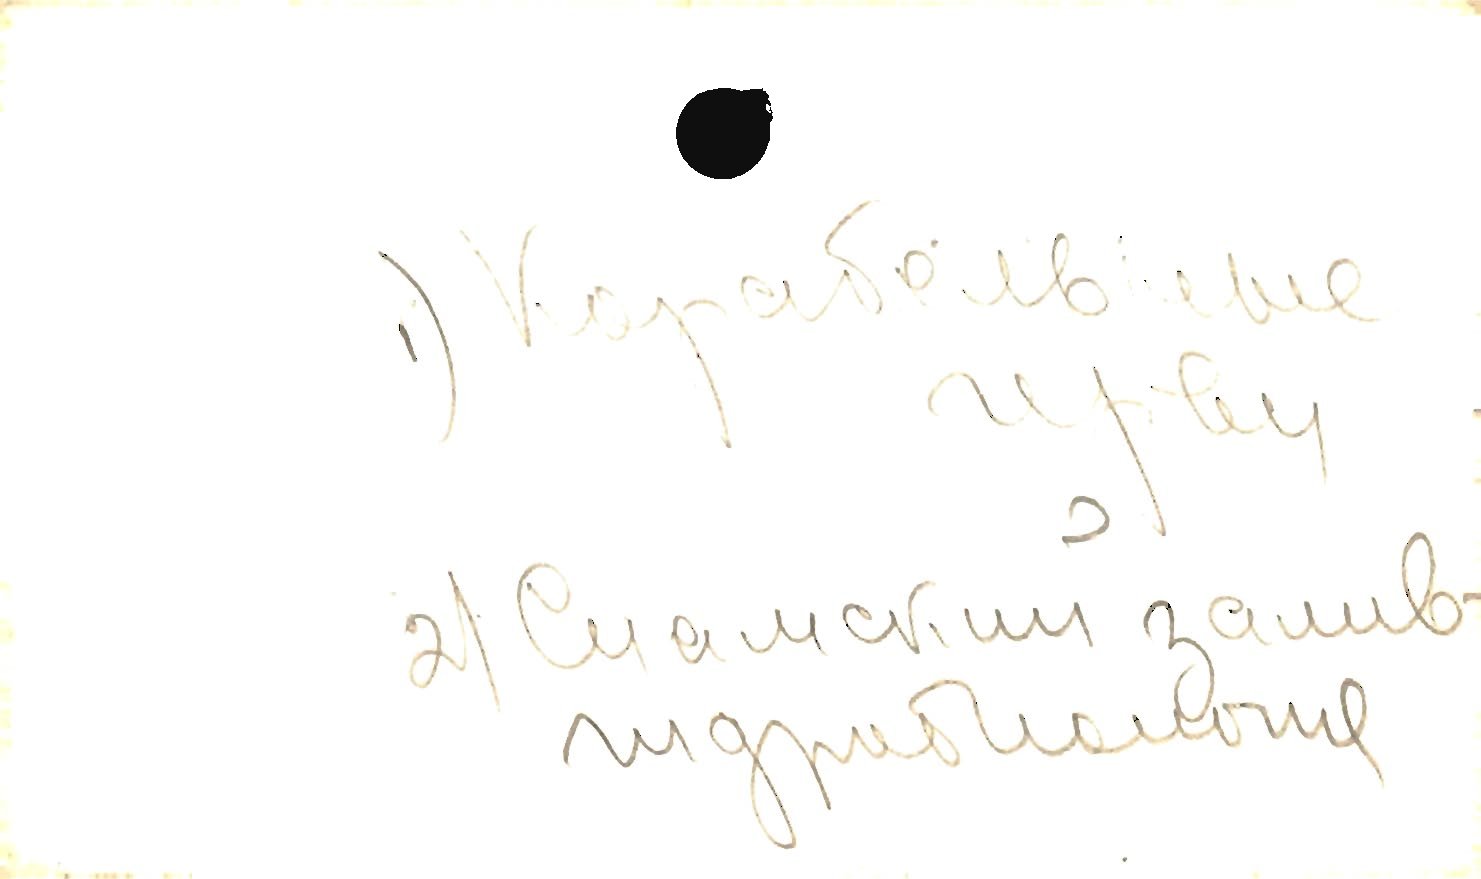 1) Корабельные
черви
2) Сиамский залив-
гидробиология